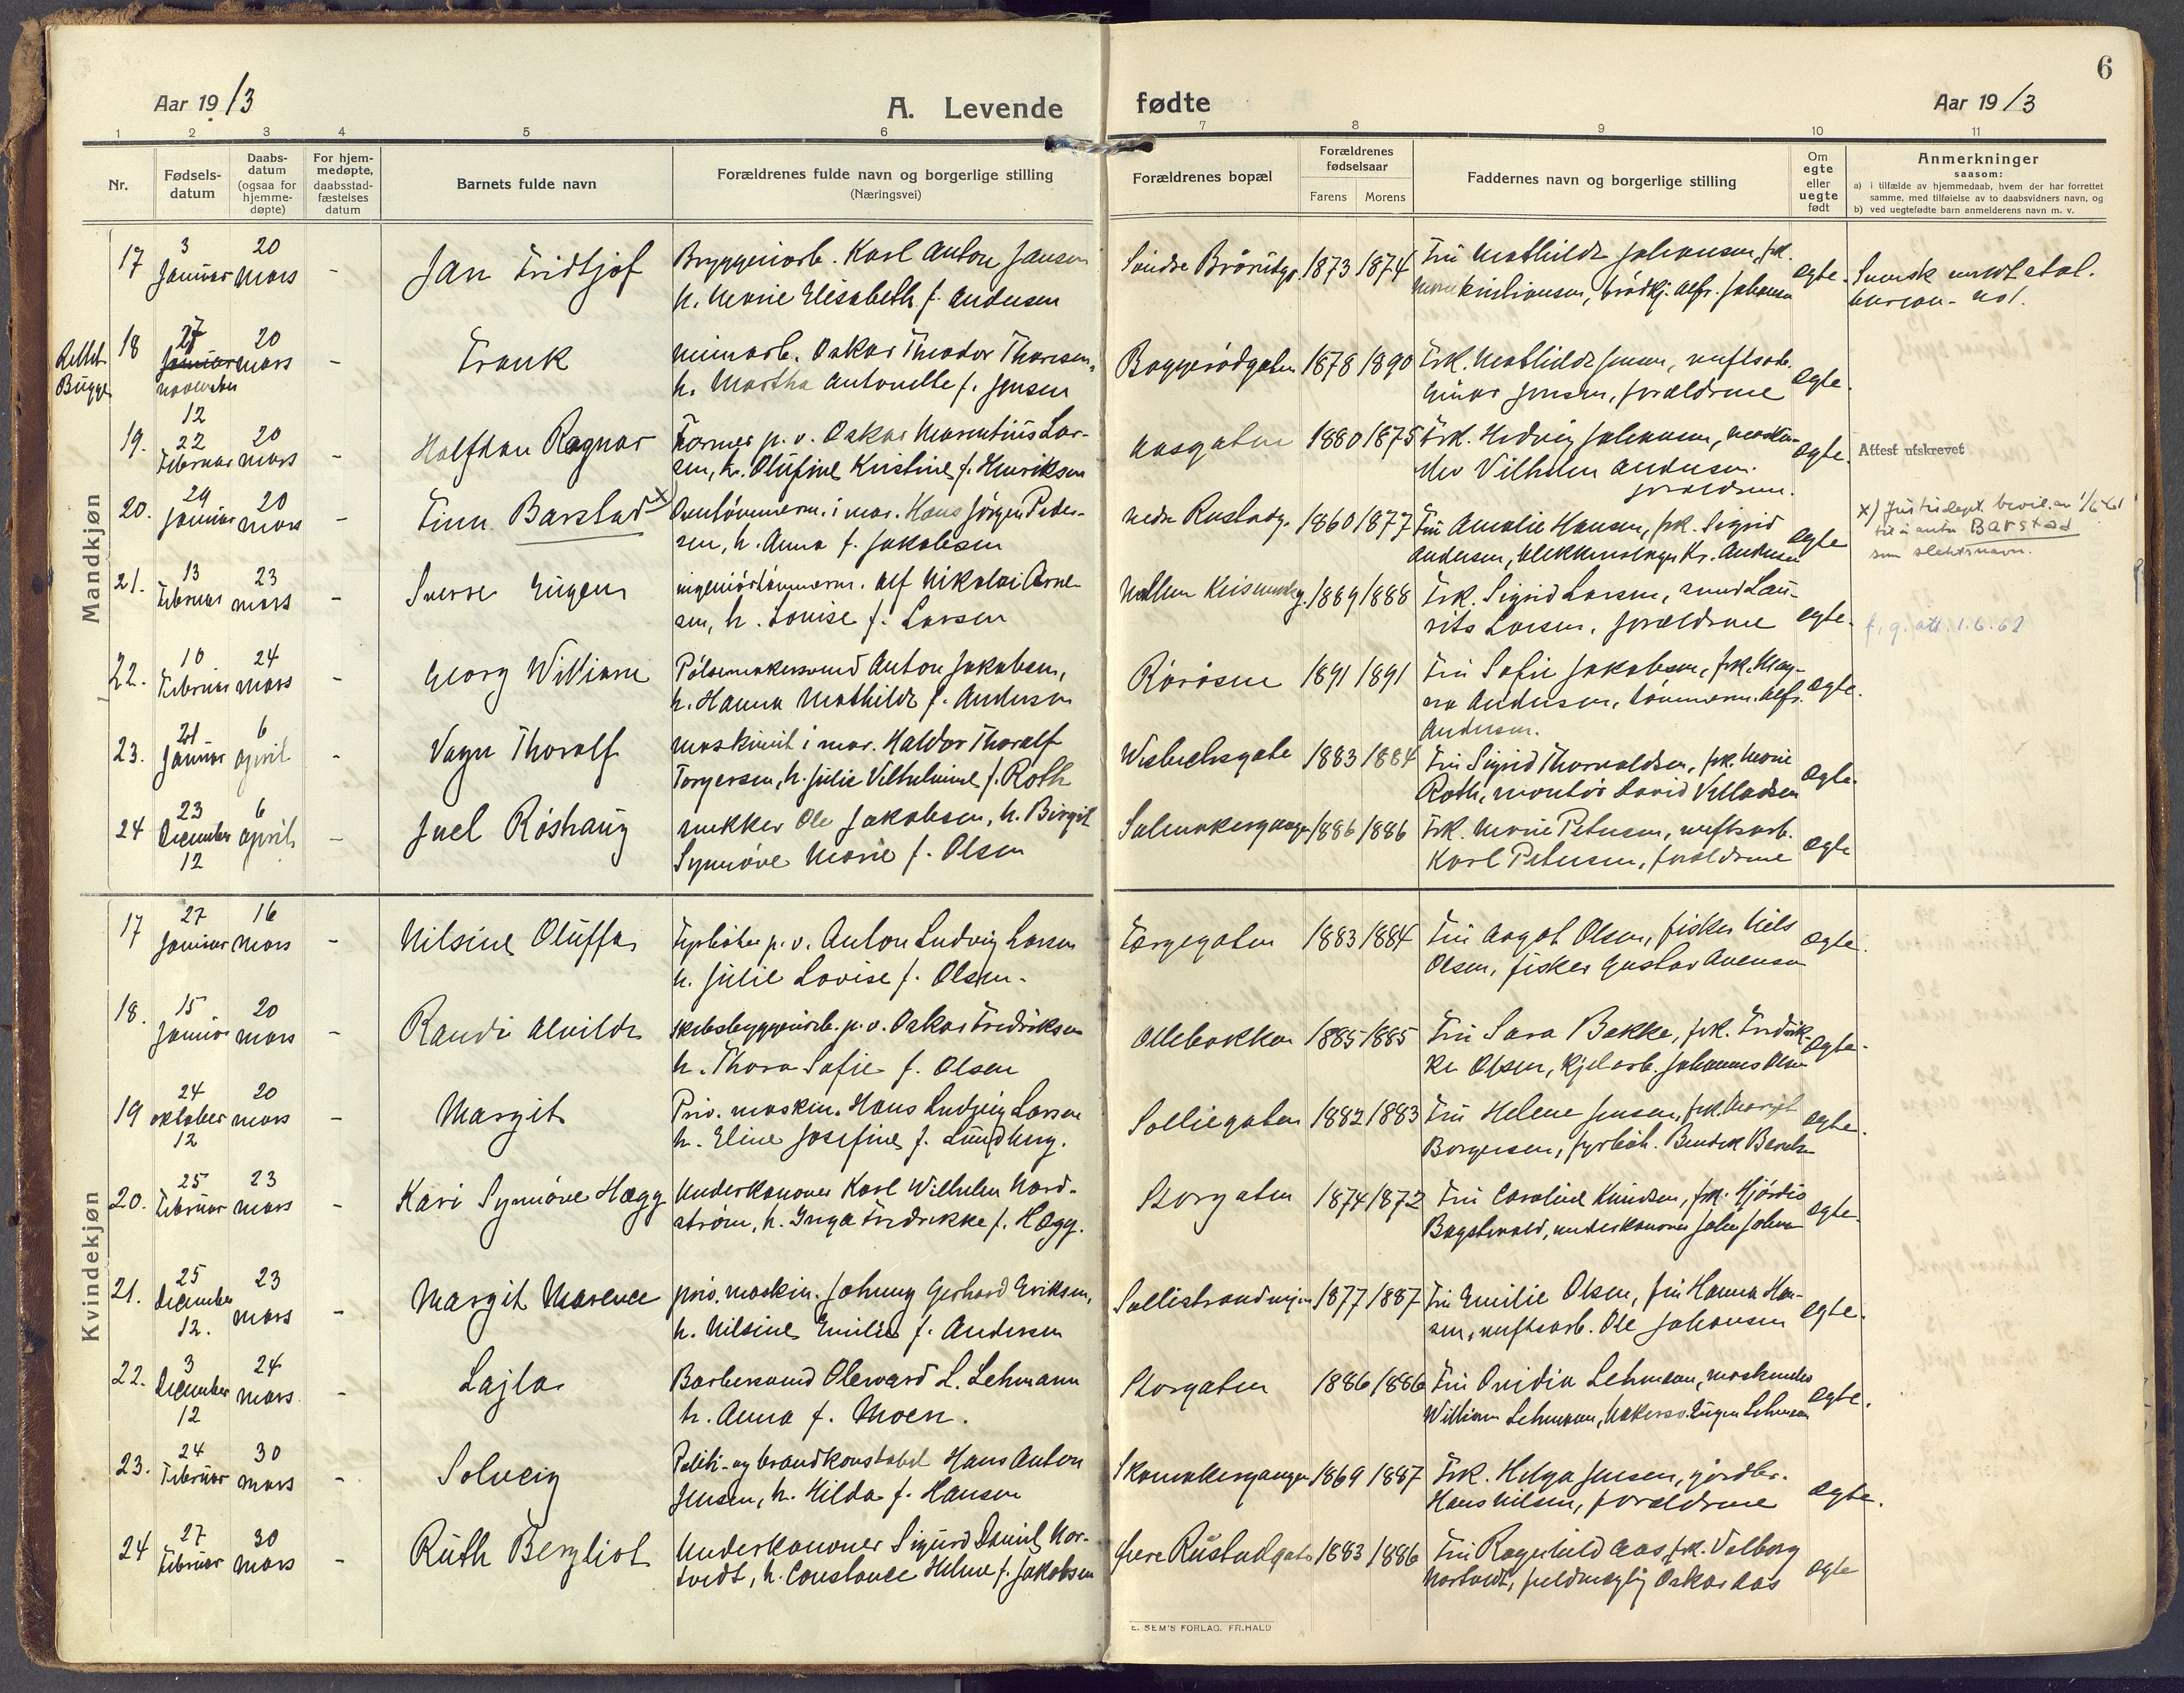 6
Aar 1913
A. Levende fødte
Aar 1913
1 2 3 4 5 6 7 8 9 10 11
Nr.
Fødsels-
datum
Daabs-
datum
(ogsaa for
hjemme-
døpte)
For hjem-
medøpte,
daabsstad-
fæstelses
datum
Barnets fulde navn
Forældrenes fulde navn og borgerlige stilling
(Næringsvei)
Forældrenes bopæl
Forældrenes
fødselsaar
Farens Morens
Faddernes navn og borgerlige stilling
Om
egte
eller
uegte
født
Anmerkninger
saasom:
a) i tilfælde av hjemmedaab, hvem der har forrettet
samme, med tilføielse av to daabsvidners navn, og
b) ved uegtefødte barn anmelderens navn m. v.
Mandkjøn
17 3 Januar 20 mars - Jan Fridtjof
Bryggeriarb. Karl Anton Jansen
h. Marie Elisabeth f. Andersen
1873 1874
Fru Mathilde Johansen, frk.
brødkj. Alfr. Johansen
egte.
Svensk
Rettet
Bugge
18 27 Januar november 12 20 mars - Frank
Oskar Theodor Thoresen,
h. Martha Antonette f. Jensen
Baggerødgaten 1878 1890
Frk. Mathilde Jensen, verftsarb.
Einar Jensen, forældrene
egte.
19. 22 Februar 20 mars - Halfdan Ragnar
Former p. v. Oskar Marentius Lar-
sen, h. Olufine Kristine f. Henriksen
Aasgaten 1880 1875
Frk. Hedvig Johansen, maskin-
Vilhelm Andersen.
forældrene.
egte.
Attest utskrevet
20. 29 Januar 20 mars - Finn Barstad x
i mar. Hans Jørgen Peder-
sen, h. Anna f. Jakobsen
nedre Rustadg. 1860 1877
Fru Amalie Hansen, frk. Sigrid
Andersen, blikkenslager Kr. Andersen
egte
x) Justisdept. bevil. av 1/6 61
til å anta Barstad
som slektsnavn.
21. 13 Februar 23 mars - Sverre Eugen
ingeniørtømmerm. Alf Nikolai Arne-
sen, h. Louise f. Larsen
1889 1888
Frk. Sigrid Larsen, svend Lau-
rits Larsen, forældrene
egte.
f. g. att. 1.6.62
22. 10 Februar 24 mars - Georg William
Pølsemakersvend Anton Jakobsen,
h. Hanna Mathilde f. Andersen
Rørosen 1891 1891
Fru Sofie Jakobsen, frk. Mag-
na Andersen, tømmerm. Alfr.
Andersen.
egte.
23. 21 Januar 6 april - Vagn Thoralf
maskinist i mar. Haldor Thoralf
Torgersen, h. Julie Vilhelmine f. Roth
Wisbechsgate 1883 1884
Fru Sigrid Thorvaldsen, frk. Marie
Roth, montør David Villadsen
egte.
24 23 December 12 6 april - Juel Røshaug
snekker Ole Jakobsen, h. Birgit
Synnøve Marie f. Olsen
Salmakergangen 1886 1886
Frk. Marie Petersen, verftsarb.
Karl Petersen, forældrene
egte
Kvindekjøn
17 27 Januar 16 mars - Nilsine Oluffa
Fyrbøter p. v. Anton Ludvig Larsen
h. Julie Lovise f. Olsen.
Færgegaten 1883 1884
Fru Aagot Olsen, fisker Niels
Olsen, fisker Gustav Avensen
egte.
18. 15 Januar 20 mars - Randi Alvilde
skibsbyggeriarb. p. v. Oskar Fredriksen
h. Thora Sofie f. Olsen
Ollebakken 1885 1885
Fru Sara Bakke, frk. Fredrik-
ke Olsen, kjelarb. Johannes Olsen
egte.
19 24 oktober 12 20 mars - Margit
Priv. maskin. Hans Ludvig Larsen
h. Eline Josefine f. Lundberg.
Solliegaten 1882 1883
Fru Helene Jensen, frk. Margit
Borgersen, fyrbøt. Bendik
egte.
20. 25 Februar 23 mars - Kari Synnøve Hægg
Underkanoner Karl Wilhelm Nord-
strøm, h. Inga Fredrikke f. Hægg.
Storgaten 1874 1872
Fru Caroline Knudsen, frk. Hjørdis
underkanoner
egte.
21. 25 December 12. 23 mars - Margit Marence
priv. maskin. Johnny Gerhard Eriksen,
h. Nilsine Emilie f. Andersen
Sollistrandveien 1877 1887
Fru Emilie Olsen, fru Hanna Han-
sen, verftsarb. Ole Johansen
egte.
22. 3 December 12 24 mars - Lajla
Barbersvend Oleward L. Lehmann
h. Anna f. Moen.
Storgaten 1886 1886
Fru Ovidia Lehmann,
William Lehmann, Eugen Lehmann
egte.
23. 24 Februar 30 mars - Solveig
Politi- og brandkonstabel Hans Anton
Jensen, h. Hilda f. Hansen
Skomakergangen 1869 1887
Frk. Helga Jensen, gårdbr.
Hans Nilsen, forældrene
egte.
24 27 Februar 30 mars - Ruth Bergliot
Underkanoner Sigurd Daniel Nor-
tvedt, h. Constance Helene f. Jakobsen
øvre Rustadgate 1883 1886
Fru Ragnhild Aas, frk. Valborg
Nortvedt, fuldmægtig Oskar Aas
egte
E. SEM'S FORLAG. FR.HALD